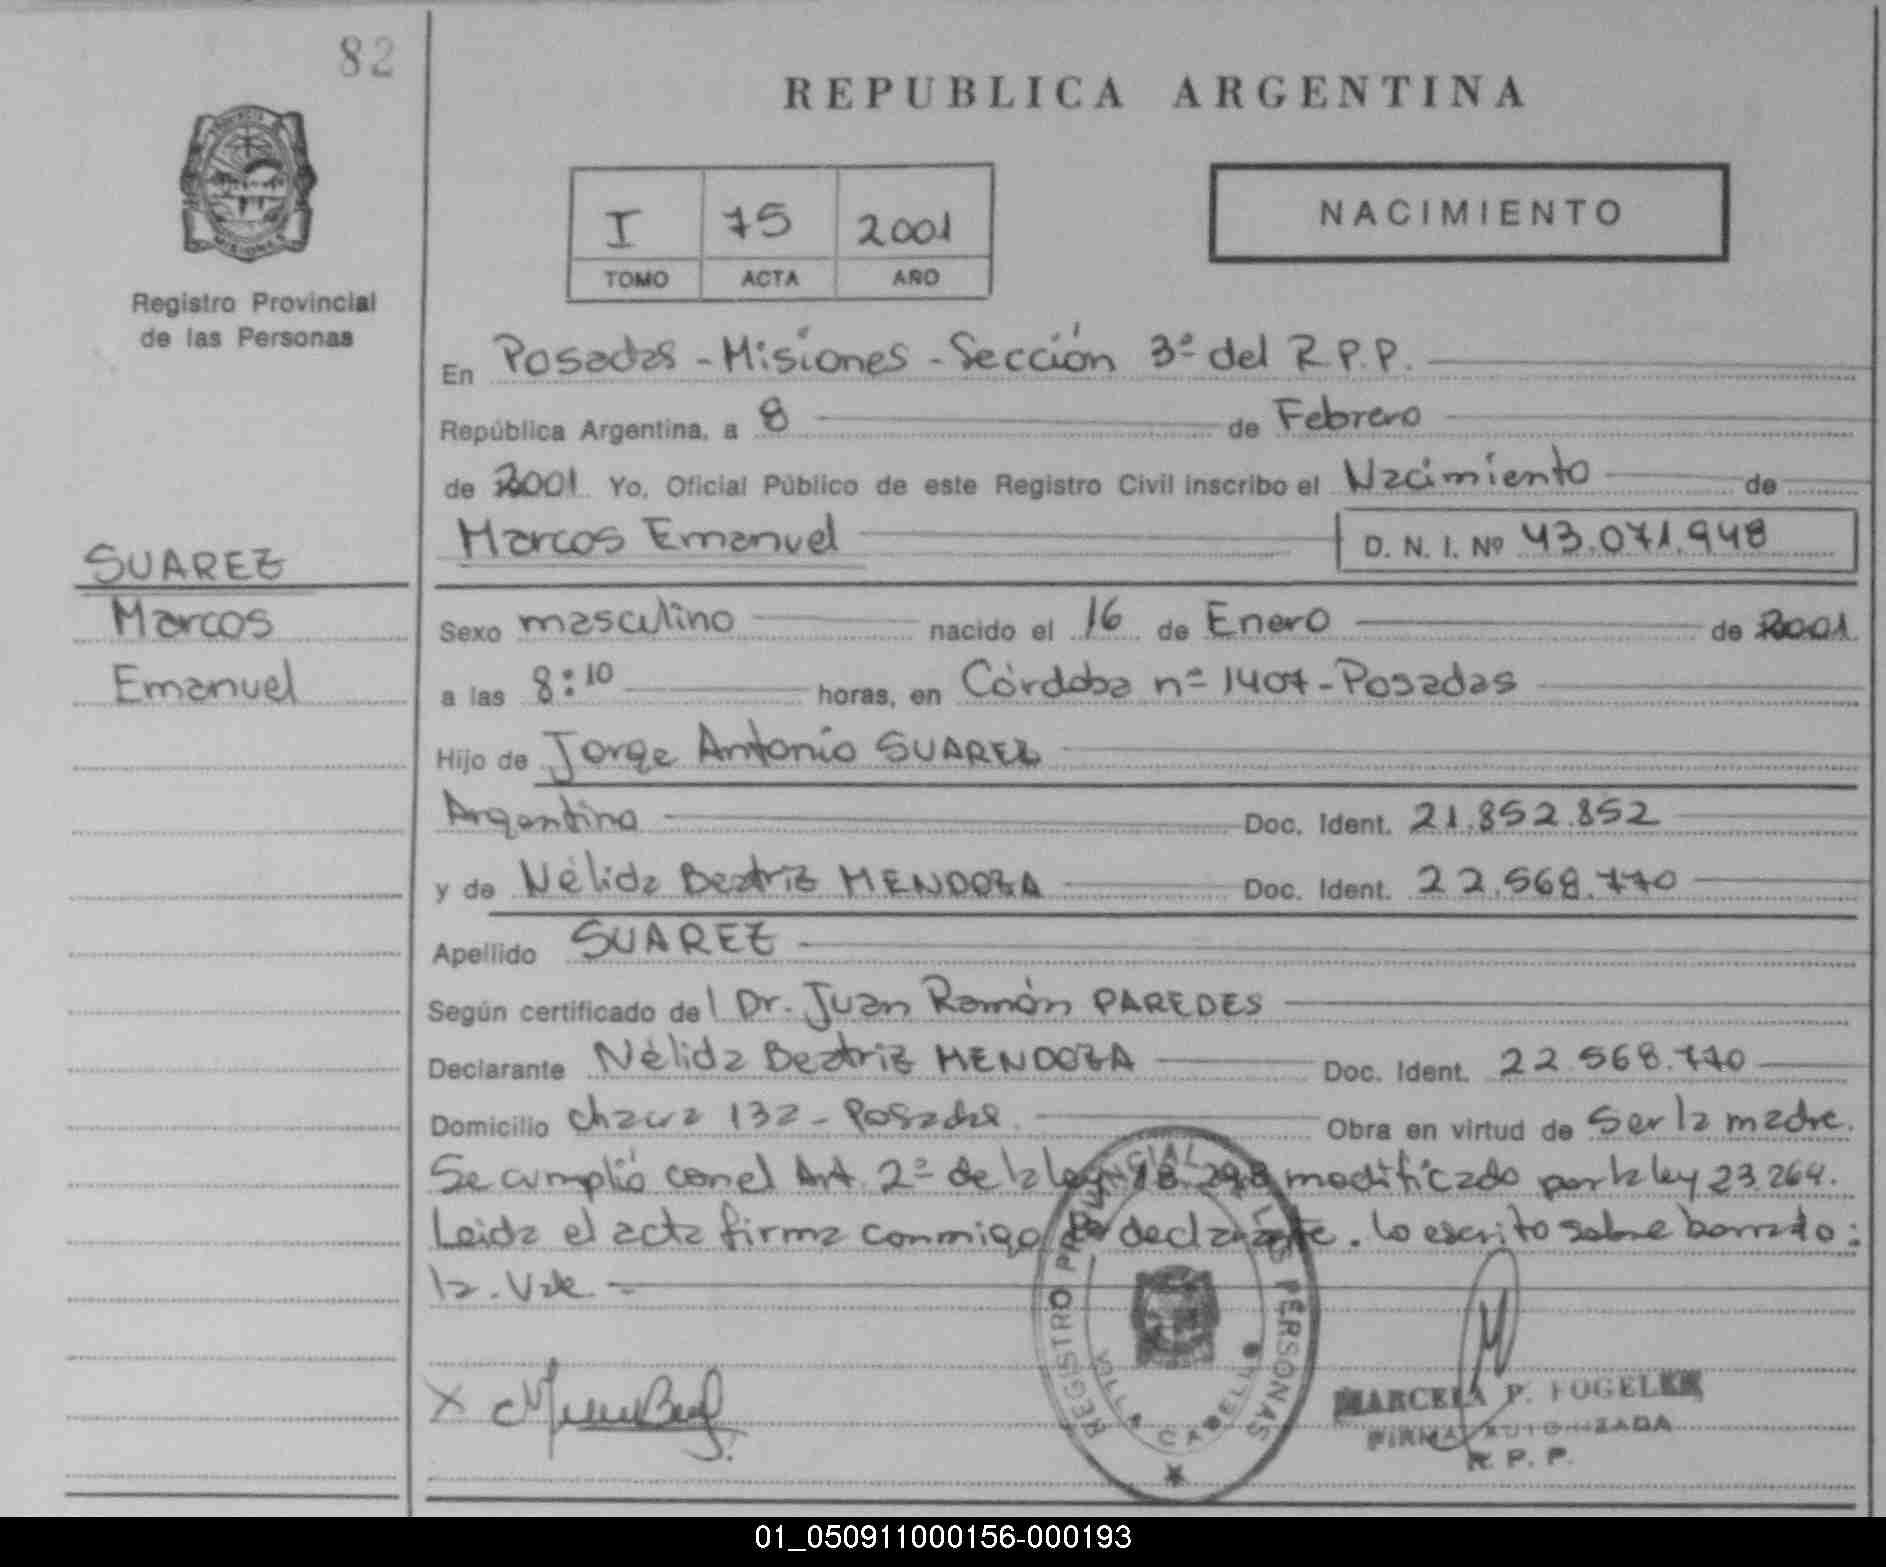 82
REPUBLICA ARGENTINA
I 75 2001
TOMO ACTA AÑO
NACIMIENTO
Registro Provincial
de las Personas
En Posadas - Misiones - Sección 3ª del R.P.P.
República Argentina, a 8 de Febrero
de 2001 Yo, Oficial Público de este Registro Civil inscribo el Nacimiento de
Marcos Emanuel D. N. I. Nº 43.071.948
SUAREZ
Marcos
Emanuel
Sexo masculino nacido el 16 de Enero de 2001
a las 8:10 horas, en Córdoba nº 1407 - Posadas
Hijo de Jorge Antonio SUAREZ
Argentino Doc. Ident. 21.852.852
y de Nélida Beatriz MENDOZA Doc. Ident. 22.568.770
Apellido SUAREZ
Según certificado del Dr. Juan Ramón PAREDES
Declarante Nélida Beatriz MENDOZA Doc. Ident. 22.568.770
Domicilio 132 - Posadas Obra en virtud de ser la madre.
Se cumplió con el Art. 2º de la ley 18.248 modificado por la ley 23.264.
Leida el acta firma conmigo la declarante. Lo escrito sobre borrado:
la. Vale
REGISTRO PROVINCIAL LAS PERSONAS
VILLA CABELLO
MARCELA P. FOGELER
FIRMA AUTORIZADA
R. P. P.
01_050911000156-000193